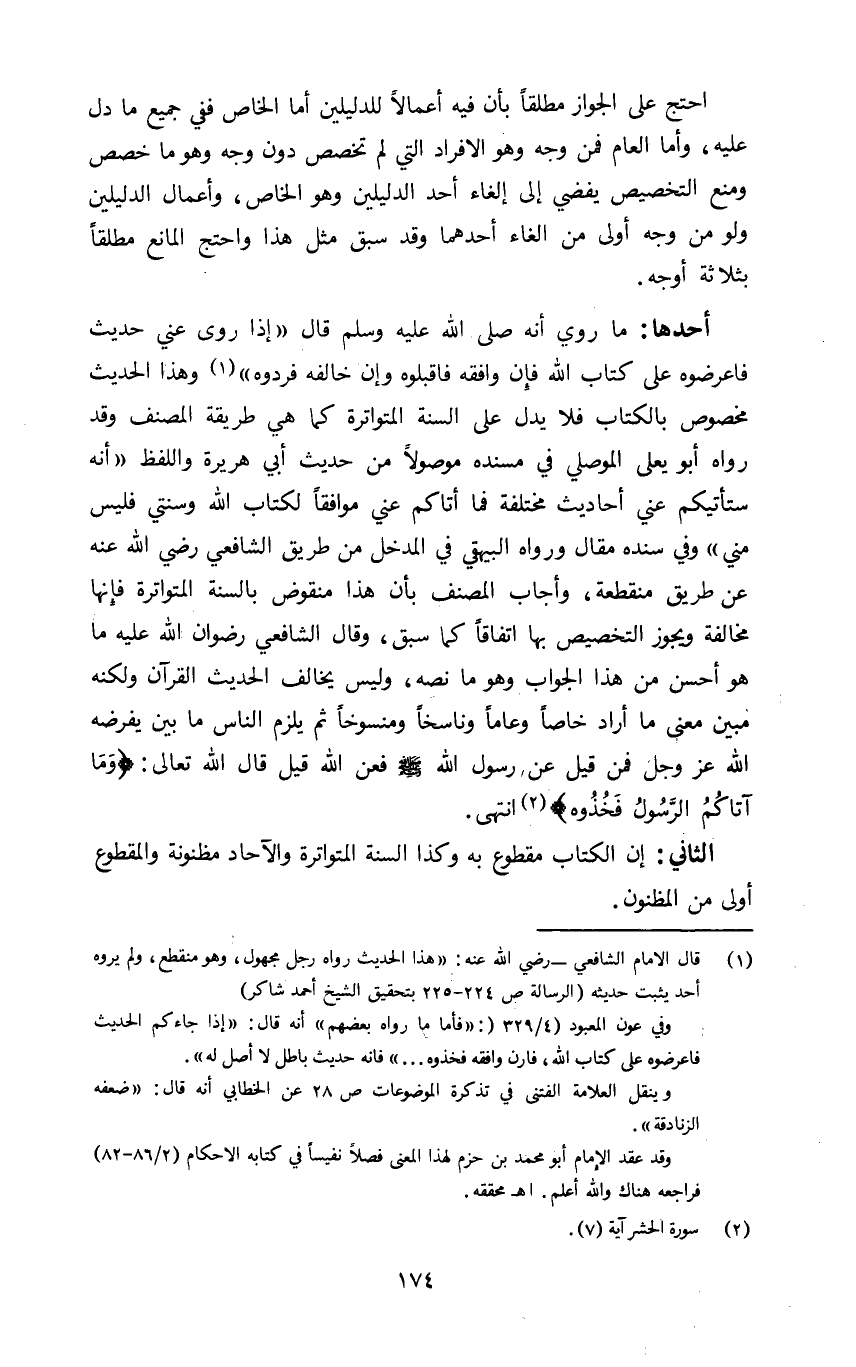 احتج على الجواز مطلقاً بأن فيه أعمالاً للدليلين أما الخاص ففي جميع ما دل
عليه، وأما العام فمن وجه وهو الافراد التي لم تخصص دون وجه وهو ما خصص
ومنع التخصيص يفضي إلى إلغاء أحد الدليلين وهو الخاص، وأعمال الدليلين
ولو من وجه أولى من الغاء أحدهما وقد سبق مثل هذا واحتج المانع مطلقاً
بثلاثة أوجه.
أحدها: ما روي أنه صلى الله عليه وسلم قال «إذا روى عني حديث
فاعرضوه على كتاب الله فإن وافقه فاقبلوه وإن خالفه فردوه»(١) وهذا الحديث
مخصوص بالكتاب فلا يدل على السنة المتواترة كما هي طريقة المصنف وقد
رواه أبو يعلى الموصلي في مسنده موصولاً من حديث أبي هريرة واللفظ «أنه
ستأتيكم عني أحاديث مختلفة فما أتاكم عني موافقاً لكتاب الله وسنتي فليس
مني» وفي سنده مقال ورواه البيهقي في المدخل من طريق الشافعي رضي الله عنه
عن طريق منقطعة، وأجاب المصنف بأن هذا منقوض بالسنة المتواترة فإنها
مخالفة ويجوز التخصيص بها اتفاقاً كما سبق، وقال الشافعي رضوان الله عليه ما
هو أحسن من هذا الجواب وهو ما نصه، وليس يخالف الحديث القرآن ولكنه
مبين معنى ما أراد خاصاً وعاماً وناسخاً ومنسوخاً ثم يلزم الناس ما بين يفرضه
الله عز وجل فمن قيل عن رسول الله ﷺ فعن الله قيل قال الله تعالى: ﴿وَمَا
آتاكُمُ الرَّسُولُ فَخُذُوه﴾(٢) انتهى.
الثاني: إن الكتاب مقطوع به وكذا السنة المتواترة والآحاد مظنونة والمقطوع
أولى من المظنون.
(١) قال الامام الشافعي ــ رضي الله عنه: «هذا الحديث رواه رجل مجهول، وهو منقطع، ولم يروه
أحد يثبت حديثه (الرسالة ص ٢٢٤-٢٢٥ بتحقيق الشيخ أحمد شاكر)
وفي عون المعبود (٣٢٩/٤ (:«فأما ما رواه بعضهم» أنه قال: «إذا جاءكم الحديث
فاعرضوه على كتاب الله، فارن وافقه فخذوه...» فانه حديث باطل لا أصل له».
وينقل العلامة الفتنى في تذكرة الموضوعات ص ٢٨ عن الخطابي أنه قال: «ضعفه
الزنادقة».
وقد عقد الإمام أبو محمد بن حزم لهذا المعنى فصلاً نفيساً في كتابه الاحكام (٨٦/٢-٨٢)
فراجعه هناك والله أعلم. اهـ محققه.
(٢) سورة الحشر آية (٧).
١٧٤